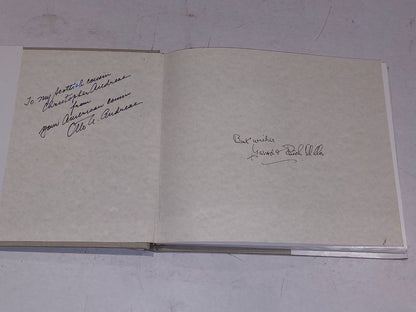 To my Scottish cousin
Christopher Andreae
from
your American cousin
Otto G. Andreae
Best wishes